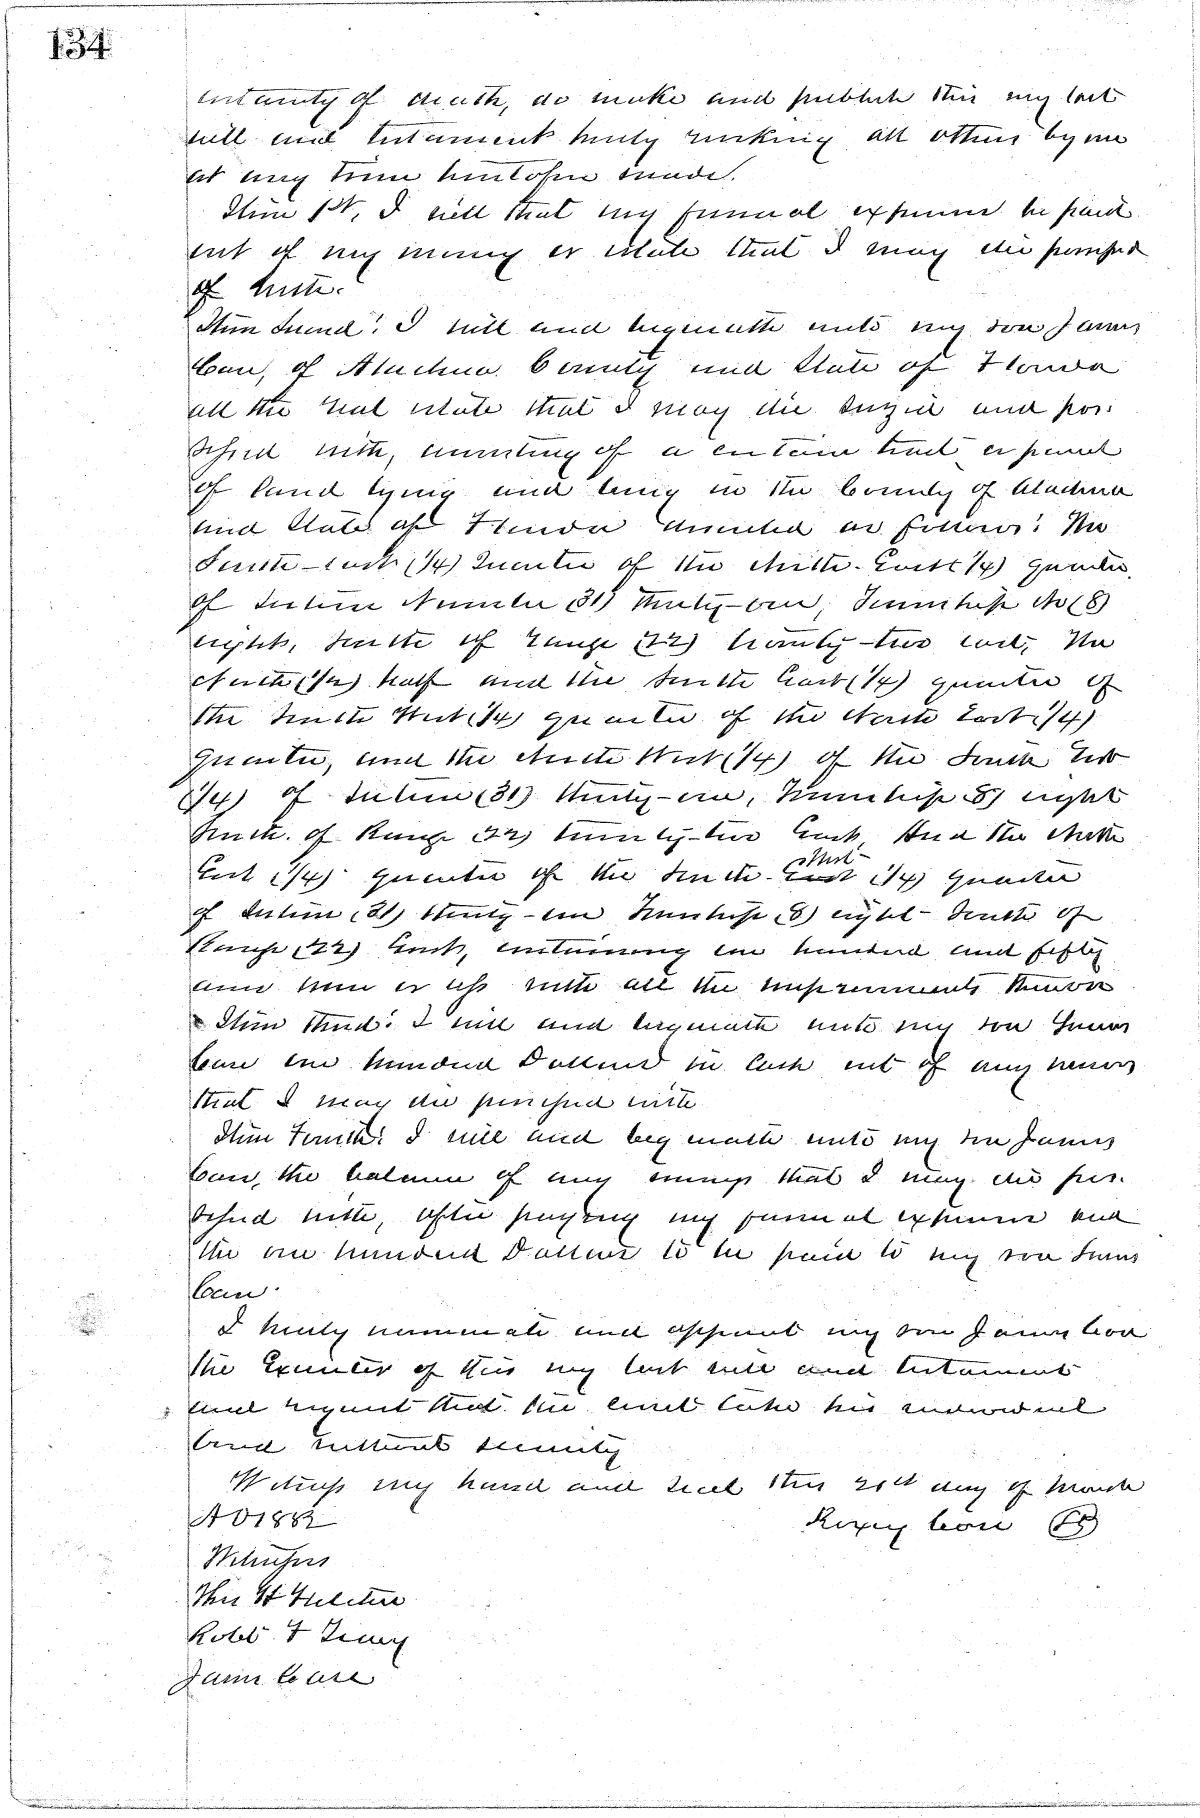 134
certainty of death, do make and publish this my last
will and testament hereby revoking all others by me
at any time heretofore made.
Item 1st, I will that my funeral expenses be paid
out of my money or estate that I may die possessed
of with.
Item Second: I will and bequeathe unto my son James
of Alachua County and State of Florida
all the real estate that I may die seized and pos-
sessed with, consisting of a certain tract or parcel
of land lying and being in the County of Alachua
and State of Florida described as follows: The
South-east (1/4) Quarter of the North-East 1/4) quarter
of Section Number (31) thirty-one, Township No (8)
eight, South of range (22) twenty-two east, The
North (1/2) half and the South East (1/4) quarter of
the South West (1/4) quarter of the North East (1/4)
Quarter, and the North West (1/4) of the South East
(1/4) of Section (31) thirty-one, Township 8) eight
South of Range 22) twenty-two East, And the North
East (1/4) quarter of the South-East West (1/4) Quarter
of Section (31) thirty-one Township (8) eight South of
Range (22) East, containing one hundred and fifty
acres more or less with all the improvements thereon
Item third: I will and bequeath unto my son
one hundred Dollars in Cash out of any money
that I may die possessed with
Item Fourth: I will and bequeathe unto my son James
the balance of any money that I may die pos-
sessed with, after paying my funeral expenses and
the one hundred Dollars to be paid to my son

I hereby nominate and appoint my son James
the Executor of this my last will and testament
and request that the court take his individual
bond without security
Witness my hand and seal this 21st day of March
AD 1882
Witnesses
Robt F
James